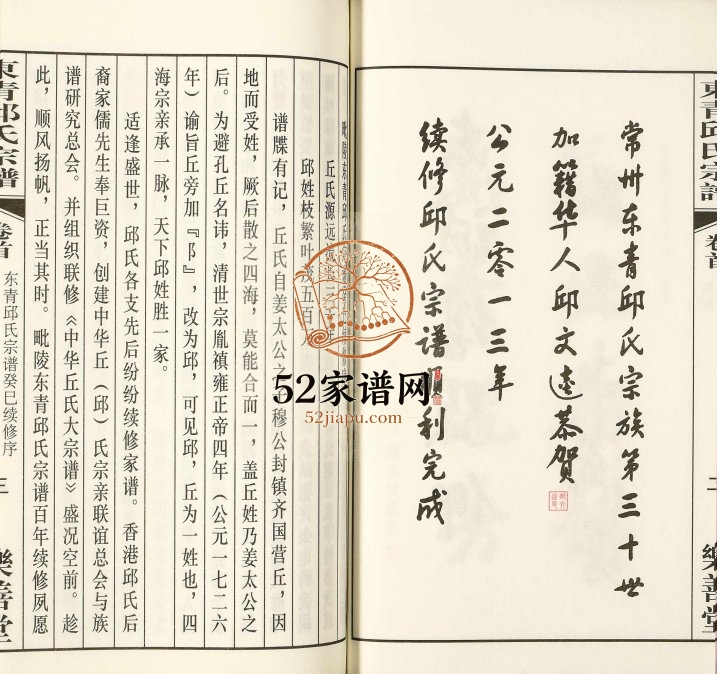 東青邱氏宗譜 卷首 二 樂善堂
常州东青邱氏宗族第三十世
加籍华人邱文恭贺
公元二零一三年
续修邱氏宗谱顺利完成
毗陵东青邱氏
丘氏源远
邱姓枝繁叶茂五百
谱牒有记，丘氏自姜太公之穆公封镇齐国营丘，因
地而受姓，厥后散之四海，莫能合而一，盖丘姓乃姜太公之
后。为避孔丘名讳，清世宗胤禛雍正帝四年（公元一七二六
年）谕旨丘旁加『阝』，改为邱，可见邱，丘为一姓也，四
海宗亲承一脉，天下邱姓胜一家。
适逢盛世，邱氏各支先后纷纷续修家谱。香港邱氏后
裔家儒先生奉巨资，创建中华丘（邱）氏宗亲联谊总会与族
谱研究总会。并组织联修《中华丘氏大宗谱》盛况空前。趁
此，顺风扬帆，正当其时。毗陵东青邱氏宗谱百年续修夙愿
東青邱氏宗譜 卷首 东青邱氏宗谱癸巳续修序 三 樂善堂
52家谱网
52jiapu.com